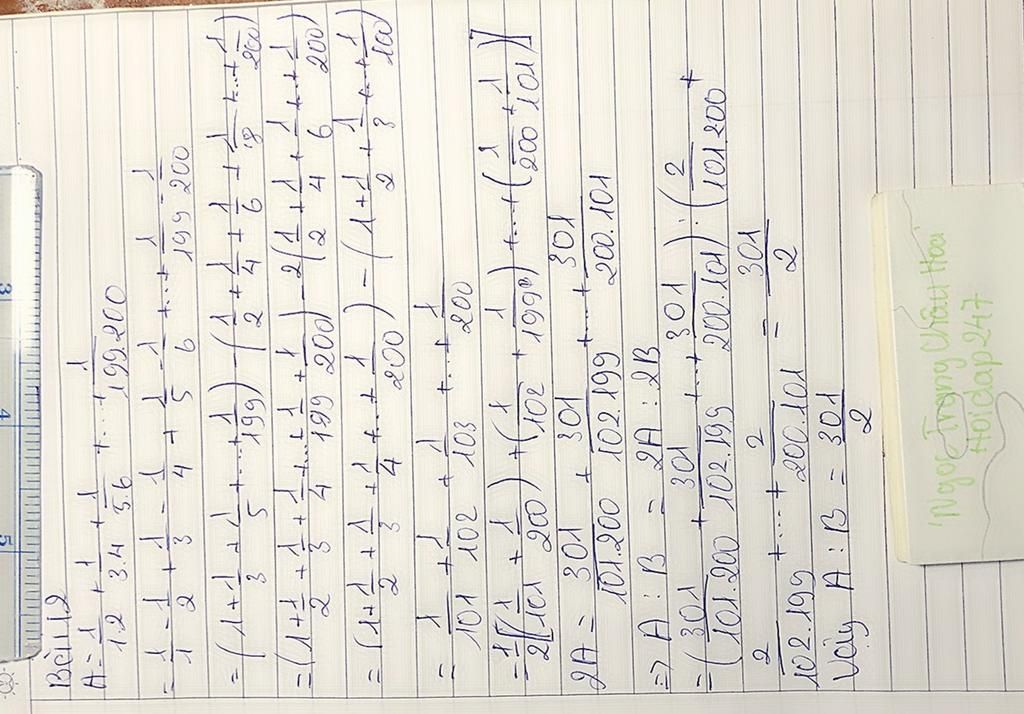 Bài 12
A = 1/1.2 + 1/3.4 + 1/5.6 + ... + 1/199.200
= 1/1 - 1/2 + 1/3 - 1/4 + 1/5 - 1/6 + ... + 1/199 - 1/200
= (1 + 1/3 + 1/5 + ... + 1/199) - (1/2 + 1/4 + 1/6 + 1/8 + ... + 1/200)
= (1 + 1/2 + 1/3 + 1/4 + ... + 1/199 + 1/200) - 2(1/2 + 1/4 + 1/6 + ... + 1/200)
= (1 + 1/2 + 1/3 + 1/4 + ... + 1/200) - (1 + 1/2 + 1/3 + ... + 1/100)
= 1/101 + 1/102 + 1/103 + ... + 1/200
= 1/2[(1/101 + 1/200) + (1/102 + 1/199) + ... + (1/200 + 1/101)]
2A = 301/101.200 + 301/102.199 + ... + 301/200.101
=> A : B = 2A : 2B
= (301/101.200 + 301/102.199 + ... + 301/200.101) : (2/101.200 +
2/102.199 + .... + 2/200.101 = 301/2
Vậy A : B = 301/2
Ngor Trang Châu Hoài
Hoidap247
3
4
5